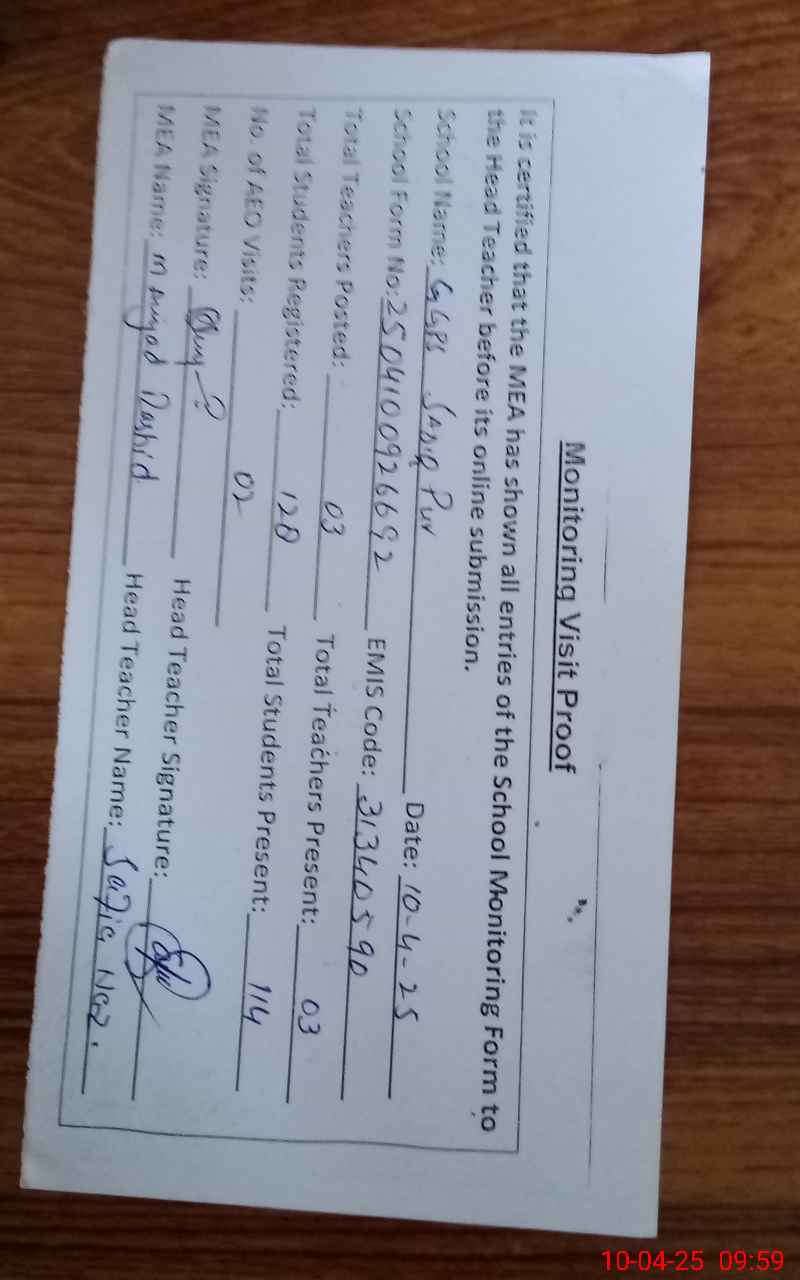 Monitoring Visit Proof
It is certified that the MEA has shown all entries of the School Monitoring Form to
the Head Teacher before its online submission.
School Name: GGPS Sadiq Pur Date: 10-4-25
School Form No: 2504100926692 EMIS Code: 31340590
Total Teachers Posted: 03 Total Teachers Present: 03
Total Students Registered: 120 Total Students Present: 114
No. of AEO Visits: 02
MEA Signature: Head Teacher Signature:
MEA Name: M Rashid Head Teacher Name: Safia Naz.
10-04-25 09:59